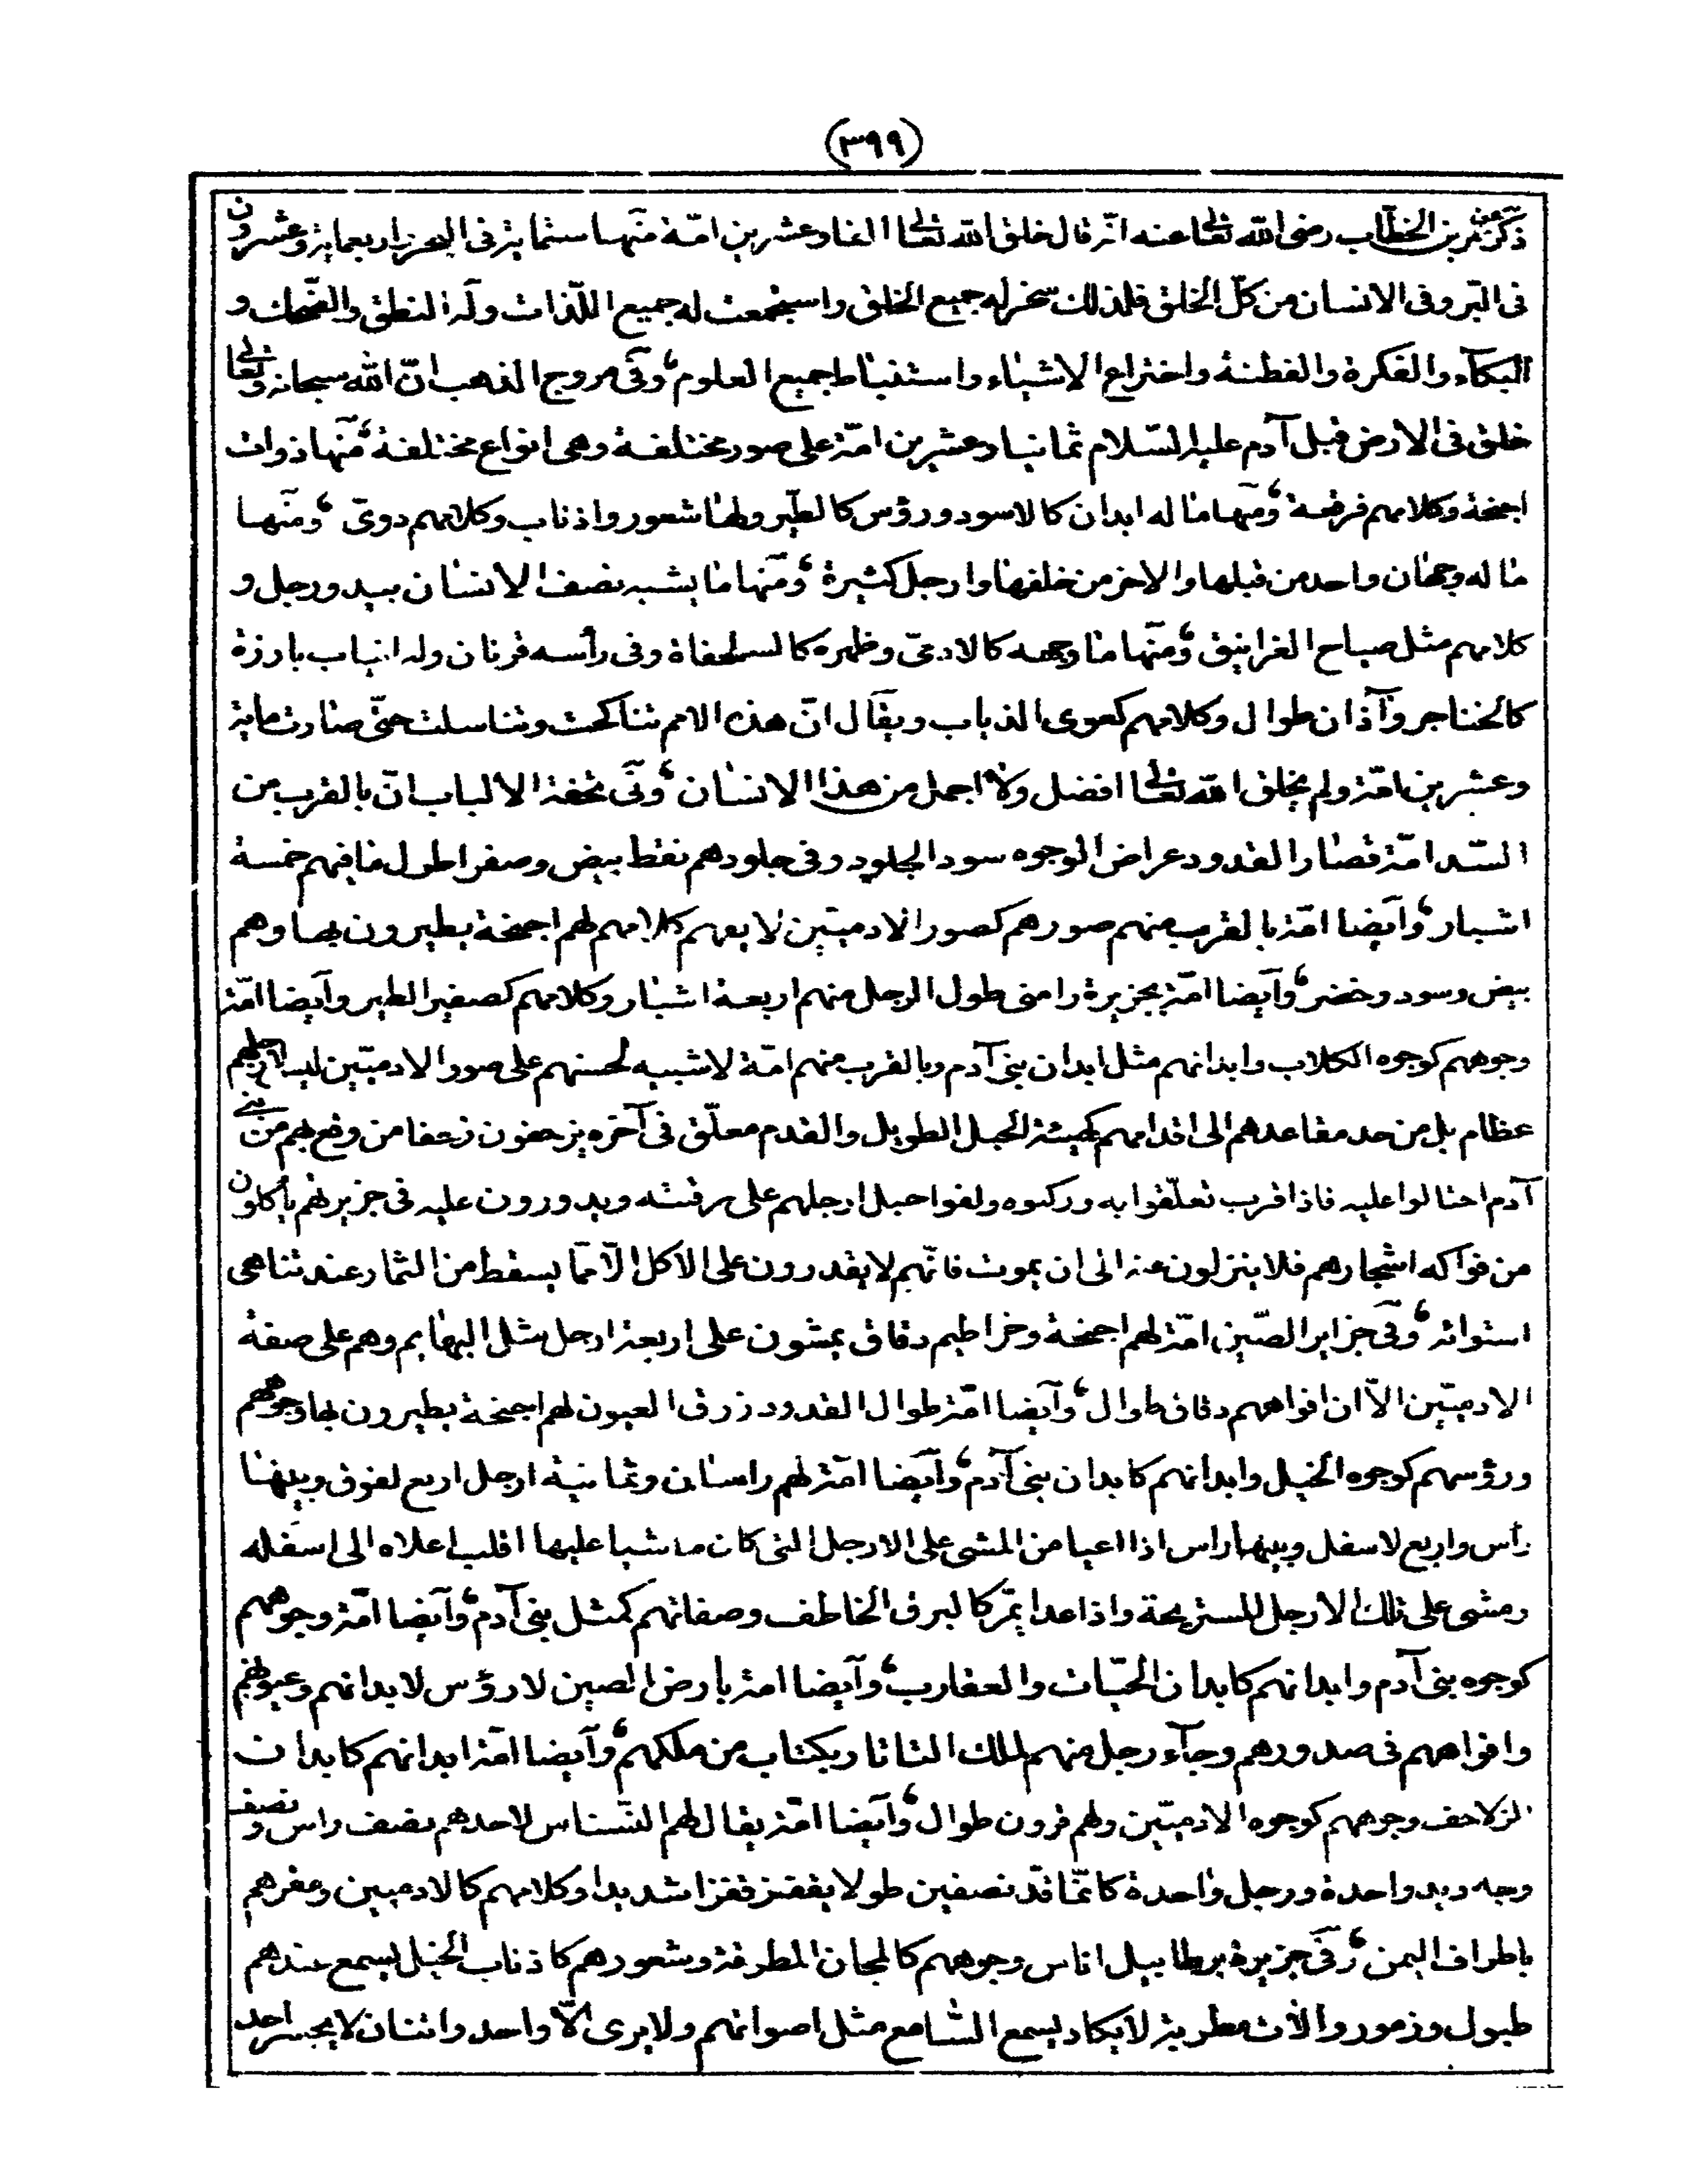 (٣٩٩)
ذكر عن عمر بن الخطاب رضى الله تعالى عنه انه قال خلق الله تعالى الفا وعشرين امّة منها ستماية فى البحر واربعماية وعشرون
فى البرّ وفى الانسان من كلّ الخلق فلذلك سخر له جميع الخلق واستجمعت له جميع اللّذات وله النطق والضحك و
البكآء والفكرة والفطنة واختراع الاشياء واستنباط جميع العلوم ، وفى مروج الذهب انّ الله سبحانه وتعالى
خلق فى الارض قبل آدم عليه السّلام ثمانيا وعشرين امّة على صور مختلفة وهى انواع مختلفة ، منها ذوات
اجنحة وكلامهم فرقعة ، ومنها ما له ابدان كالاسود ورؤس كالطّير ولها شعور واذناب وكلامهم دوىّ ، ومنها
ما له وجهان واحد من قبلها والاخر من خلفها وارجل كثيرة ، ومنها ما يشبه نصف الانسان بيد ورجل و
كلامهم مثل صياح الغرانيق ، ومنها ما وجهه كالادمىّ وظهره كالسلحفاة وفى رأسه قرنان وله انياب بارزة
كالخناجر وآذان طوال وكلامهم كعوى الذياب ويقال انّ هذه الامم تناكحت وتناسلت حتّى صارت ماية
وعشرين امّة ولم يخلق الله تعالى افضل ولا اجمل من هذا الانسان ، وفى تحفة الالباب انّ بالقرب من
السّد امّة قصار القدود عراض الوجوه سود الجلود وفى جلودهم نقط بيض وصفر اطول ما فيهم خمسة
اشبار ، وايضا امّة بالقرب منهم صورهم كصور الادميّين لا يفهم كلامهم لهم اجنحة يطيرون بها وهم
بيض وسود وخضر ، وآيضا امّة بجزيرة رامنى طول الرجل منهم اربعة اشبار وكلامهم كصفير الطير وآيضا امّة
وجوههم كوجوه الكلاب وابدانهم مثل ابدان بنى آدم وبالقرب منهم امّة لا شبيه لحسنهم على صور الادميّين ليس لارجلهم
عظام بل من حد مقاعدهم الى اقدامهم كهيئة الحبل الطويل والقدم معلّق فى آخره يزحفون زحفا من وقع بهم من بنى
آدم احتالوا عليه فاذا قرب تعلّقوا به وركبوه ولفوا حبل ارجلهم على رقبته ويدورون عليه فى جزيرتهم ياكلون
من فواكه اشجارهم فلا ينزلون عنه الى ان يموت فانّهم لا يقدرون على الاكل الّا ممّا يسقط من الثمار عند تناهى
استوائه ، وفى جزاير الصّين امّة لهم اجنحة وخراطيم دقاق يمشون على اربعة ارجل مثل البهايم وهم على صفة
الادميّين الّا ان افواههم دقاق طوال ، وآيضا امّة طوال القدود زرق العيون لهم اجنحة يطيرون بها وجوههم
ورؤسهم كوجوه الخيل وابدانهم كابدان بنى آدم ، وآيضا امّة لهم راسان وثمانية ارجل اربع لفوق وبينها
رأس واربع لاسفل وبينها راس اذا اعيا من المشى على الارجل التى كان ماشيا عليها اقلب اعلاه الى اسفله
ومشى على تلك الارجل المستريحة واذا عدا يمرّ كالبرق الخاطف وصفاتهم كمثل بنى آدم ، وآيضا امّة وجوههم
كوجوه بنى آدم وابدانهم كابدان الحيّات والعقارب ، وآيضا امّة بارض الصين لا رؤس لابدانهم وعيونهم
وافواههم فى صدورهم وجآء رجل منهم لملك التاتار بكتاب من ملكهم ، وآيضا امّة ابدانهم كابدان
الزلاحف وجوههم كوجوه الادميّين ولهم قرون طوال ، وآيضا امّة يقال لهم النّسناس لاحدهم نصف راس ونصف
وجه ويد واحدة ورجل واحدة كانّما قدّ نصفين طولا يقفز قفزا شديدا وكلامهم كالادميين ومقرهم
باطراف اليمن ، وفى جزيرة برطاييل اناس وجوههم كالمجان المطرقة وشعورهم كاذناب الخيل يسمع عندهم
طبول وزمور والات مطربة لا يكاد يسمع السّامع مثل اصواتهم ولا يرى الّا واحد واثنان لا يجسر احد